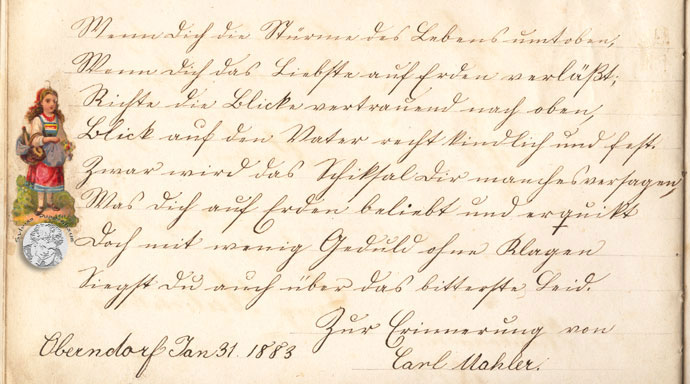 Wenn Dich die Stürme des Lebens umtoben,
Wenn Dich das Liebste auf Erden verläßt;
Richte die Blicke vertrauend nach oben,
Blick auf den Vater recht kindlich und fest.
Zwar wird das Schiksal Dir manches versagen,
Was Dich auf Erden beliebt und erquikt
Doch mit wenig Geduld ohne Klagen
Siegst Du auch über das bitterste Leid.
Zur Erinnerung von
Oberndorf Jan 31. 1883
Carl Mahler.